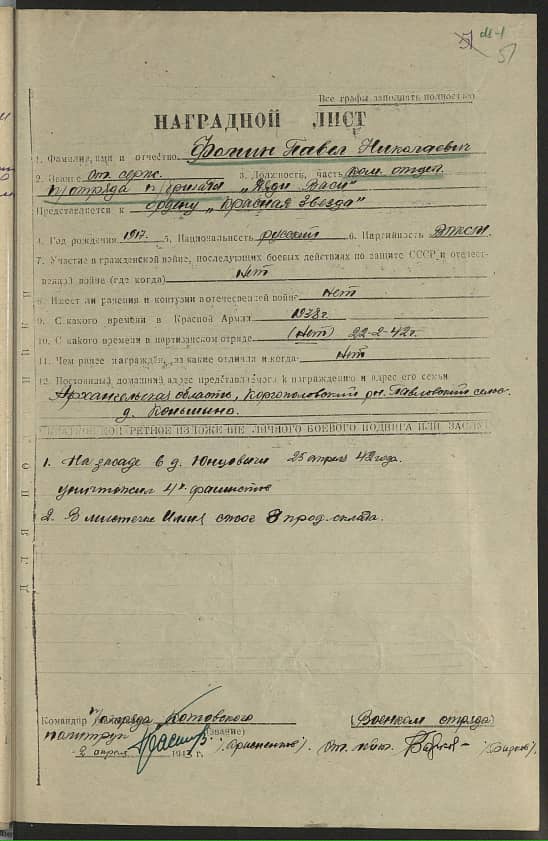 51
Все графы заполнять полностью
НАГРАДНОЙ ЛИСТ
1. Фамилия, имя и отчество Фомин Павел Николаевич
2. Звание ст. серж. 3. Должность, часть ком. отдел.
п/отряда п/бригады „Дяди Васи"
Представляется к ордену „Красная Звезда"
4. Год рождения 1917. 5. Национальность русский 6. Партийность ВЛКСМ
7. Участие в гражданской войне, последующих боевых действиях по защите СССР и отечест-
венной войне (где когда) нет
8. Имеет ли ранения и контузии в отечественной войне нет
9. С какого времени в Красной Армии 1938г.
10. С какого времени в партизанском отряде (нет) 22-2-42г.
11. Чем ранее награжден, за какие отличия и когда нет
12. Постоянный домашний адрес представляемого к награждению и адрес его семьи
Архангельская область, Каргопольский рн. Павловский сельс.
д. Коньшино.
КРАТКОЕ КОНКРЕТНОЕ ИЗЛОЖЕНИЕ ЛИЧНОГО БОЕВОГО ПОДВИГА ИЛИ ЗАСЛУГ
1. На засаде в д. Юнцовичи 25 апреля 42 года.
уничтожил 4х фашистов
2. В местечке Илия сжог 8 прод. склада.
Командир п/отряда Котовского (Военком отряда)
политрук (звание) Ст. пол.
2 апреля 1943 г.